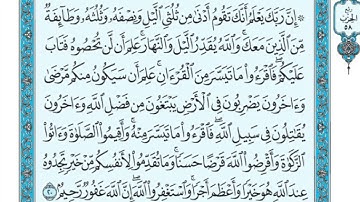 ۞ إِنَّ رَبَّكَ يَعْلَمُ أَنَّكَ تَقُومُ أَدْنَىٰ مِن ثُلُثَيِ ٱلَّيْلِ وَنِصْفَهُۥ وَثُلُثَهُۥ وَطَآئِفَةٌ
مِّنَ ٱلَّذِينَ مَعَكَۚ وَٱللَّهُ يُقَدِّرُ ٱلَّيْلَ وَٱلنَّهَارَۚ عَلِمَ أَن لَّن تُحْصُوهُ فَتَابَ
عَلَيْكُمْۖ فَٱقْرَءُوا۟ مَا تَيَسَّرَ مِنَ ٱلْقُرْءَانِۚ عَلِمَ أَن سَيَكُونُ مِنكُم مَّرْضَىٰ
وَءَاخَرُونَ يَضْرِبُونَ فِى ٱلْأَرْضِ يَبْتَغُونَ مِن فَضْلِ ٱللَّهِ وَءَاخَرُونَ
يُقَٰتِلُونَ فِى سَبِيلِ ٱللَّهِۖ فَٱقْرَءُوا۟ مَا تَيَسَّرَ مِنْهُۚ وَأَقِيمُوا۟ ٱلصَّلَوٰةَ وَءَاتُوا۟
ٱلزَّكَوٰةَ وَأَقْرِضُوا۟ ٱللَّهَ قَرْضًا حَسَنًاۚ وَمَا تُقَدِّمُوا۟ لِأَنفُسِكُم مِّنْ خَيْرٍ تَجِدُوهُ
عِندَ ٱللَّهِ هُوَ خَيْرًا وَأَعْظَمَ أَجْرًاۚ وَٱسْتَغْفِرُوا۟ ٱللَّهَۖ إِنَّ ٱللَّهَ غَفُورٌ رَّحِيمٌۢ ٢٠